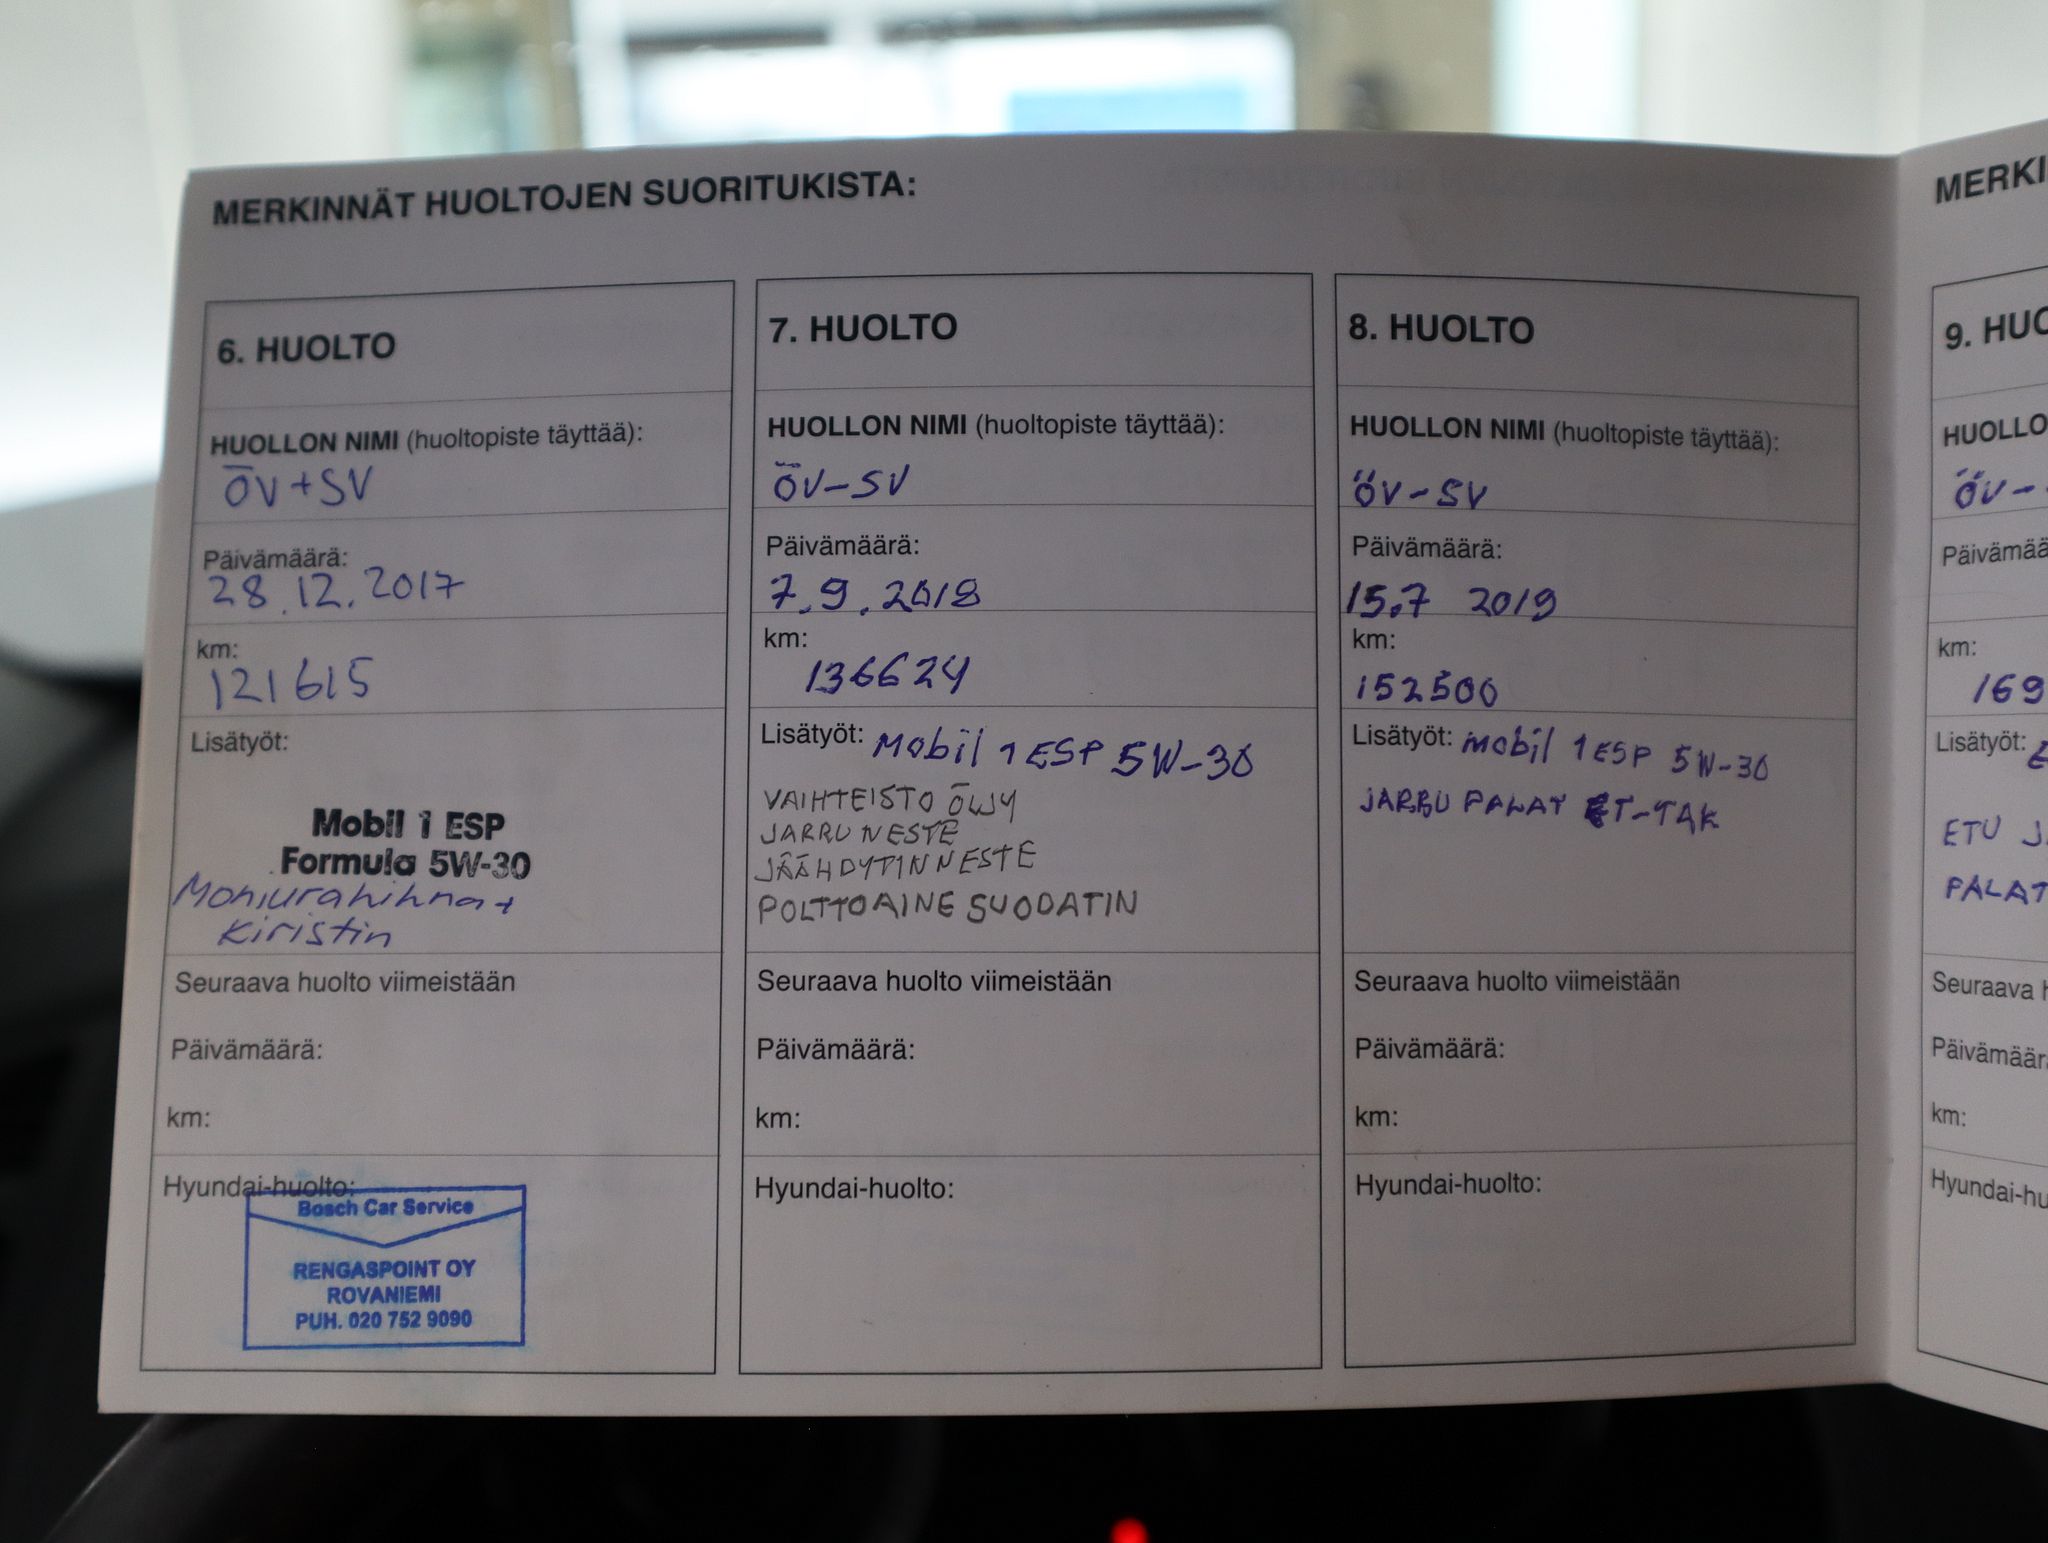 MERKINNÄT HUOLTOJEN SUORITUKISTA:
6. HUOLTO
HUOLLON NIMI (huoltopiste täyttää):
ÖV+SV
Päivämäärä:
28.12.2017
km:
121615
Lisätyöt:
Mobil 1 ESP
Formula 5W-30
Moniurahihna+
kiristin
Seuraava huolto viimeistään
Päivämäärä:
km:
Hyundai-huolto:
Bosch Car Service
RENGASPOINT OY
ROVANIEMI
PUH. 020 752 9090
7. HUOLTO
HUOLLON NIMI (huoltopiste täyttää):
ÖV-SV
Päivämäärä:
7.9.2018
km:
136624
Lisätyöt: Mobil 1 ESP 5W-30
VAIHTEISTO ÖLJY
JARRUNESTE
JÄÄHDYTINNESTE
POLTTOAINE SUODATIN
Seuraava huolto viimeistään
Päivämäärä:
km:
Hyundai-huolto:
8. HUOLTO
HUOLLON NIMI (huoltopiste täyttää):
ÖV-SV
Päivämäärä:
15.7 2019
km:
152500
Lisätyöt: Mobil 1 ESP 5W-30
JARRU PALAT ET-TAK
Seuraava huolto viimeistään
Päivämäärä:
km:
Hyundai-huolto:
MERKI
9. HUO
HUOLLO
ÖV-
Päivämää
km:
169
Lisätyöt: E
ETU J
PALAT
Seuraava h
Päivämäär
km:
Hyundai-hu